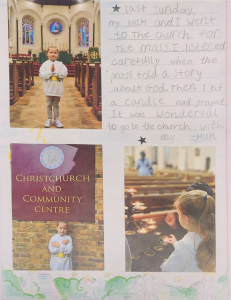 Last Sunday,
my Mum and I went
to the church for
the mass. I listened
carefully when the
priest told a story
about God. Then I lit
a candle and prayed.
It was wonderful
to go to the church with
my mum
CHRISTCHURCH
AND
COMMUNITY
CENTRE